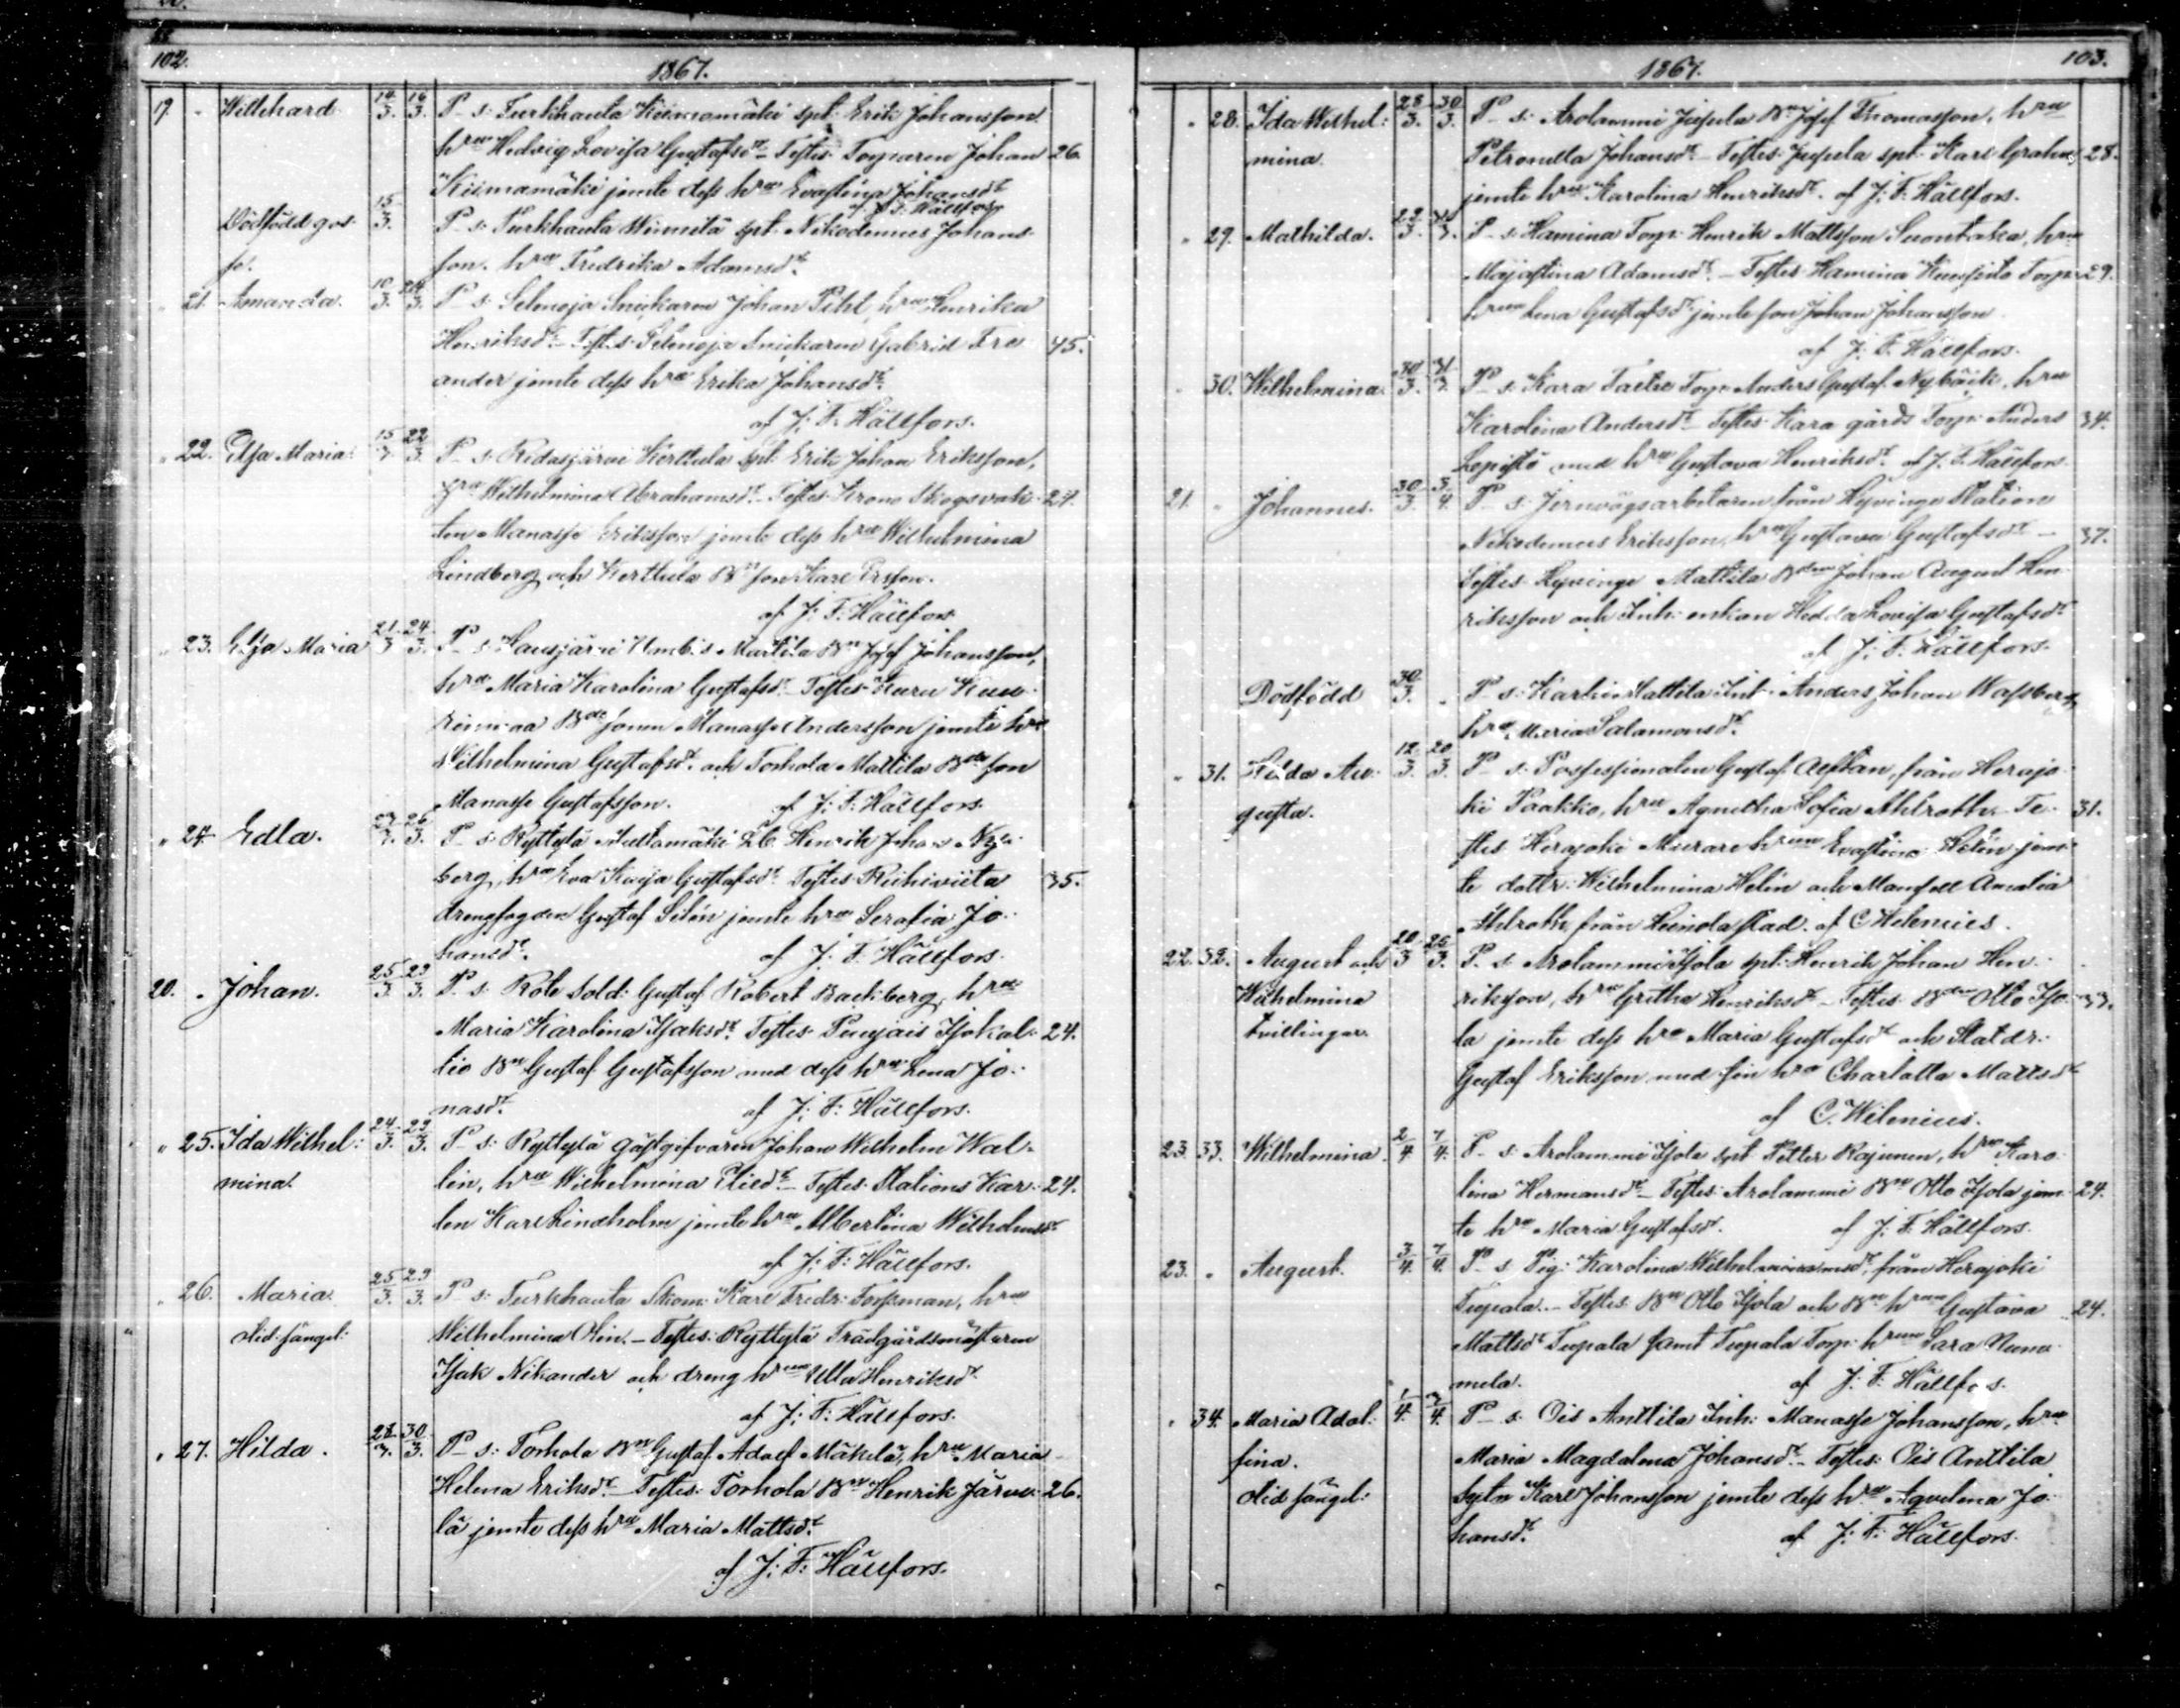 102.
1867.
19. " Willehard 14/3. 16/3. P. s: Turkhauta Kiimamäki spt. Erik Johansson
hru Hedvig Lovisa Gustafsdr. Testes: Torparen Johan 26.
Kiimamäki jemte dess hru Evastina Johansdr
af J: F: Hällfors.
Dödfödd gos- 15/3. P. s: Turkhauta spt. Nikodemus Johans-
se. son. hru Fredrika Adamsdr.
" 21. Amanda. 10/3. 24/3. P. s: Selänoja Snickaren Johan Pihl, hru Henrika
Henriksdr. Testes: Selänoja Snickaren Gabriel Fre- 45.
ander jemte dess hru Erika Johansdr.
af J: F: Hällfors.
" 22. Elsa Maria. 15/3. 22/3. P. s: Ridasjärvi Kerttula spt. Erik Johan Eriksson,
hru Wilhelmina Abrahamsdr. Testes: Krono Skogsvak- 24.
ten Manasse Eriksson jemte dess hru Wilhelmina
Lindberg och Kerttula Bn son Karl Ersson.
af J: F: Hällfors
" 23. Elsa Maria 21/3. 24/3. P. s: Hausjärvi Marttila Bn Josef Johansson,
hru Maria Karolina Gustafsdr. Testes: Kuru
Bde sonen Manasse Andersson jemte hru
Wilhelmina Gustafsdr. och Torhola Mattila Bde son
Manasse Gustafsson. af J: F: Hällfors.
" 24. Edla. 23/3. 26/3. P. s: Ryttylä Multamäki Henrik Johan Ny-
berg, hru Eva Kaisa Gustafsdr. Testes: Riihiviita 35.
drengfogden Gustaf Silén jemte hru Serafia Jo-
hansdr. af J: F: Hällfors.
20. " Johan. 25/3. 29/3. P. s: Rote Sold: Gustaf Robert Backberg, hru
Maria Karolina Isaksdr. Testes: Punjais Isokal- 24.
lio Bn Gustaf Gustafsson med dess hru Lena Jo-
nasdr. af J: F: Hällfors.
" 25. Ida Wilhel: 24/3. 29/3. P. s: Ryttylä Gästgifvaren Johan Wilhelm Wal-
mina. lin, hru Wilhelmina Eliedr. Testes: Stations Kar- 24.
len Karl Lindholm jemte hru Albertina Wilhelmsdr
af J: F: Hällfors.
" 26. Maria 25/3. 29/3. P. s: Turkhauta Skom: Karl Fredr: Forsman, hru
olid: sängel: Wilhelmina Olin. Testes: Ryttylä Trädgårdsmästaren
Isak Nikander och dreng hrun Ulla Henriksdr.
af J: F: Hällfors.
" 27. Hilda. 28/3. 30/3. P. s: Torhola Bn Gustaf Adolf Mäkelä, hru Maria
Helena Eriksdr. Testes: Torhola Bn Henrik Järve- 26.
lä jemte dess hru Maria Mattsdr.
af J: F: Hällfors.
1867. 103.
" 28. Ida Wilhel: 28/3. 30/3. P. s: Arolammi Josef Thomasson, hru
mina. Petronella Johansdr. Testes: spt. Karl Grahn 28.
jemte hru Karolina Henriksdr. af J: F: Hällfors.
" 29. Mathilda. 29/3. 31/3. P. s: Hamina Torp: Henrik Mattsson Suontaka, hru
Majastina Adamsdr. Testes: Hamina Torp: 29.
hrun Lena Gustafsdr. jemte son Johan Johansson
af J: F: Hällfors.
" 30. Wilhelmina 30/3. 31/3. P. s: Kara Torp: Anders Gustaf Nybäck, hru
Karolina Andersdr. Testes: Kara gårds Torp: Anders 34.
Lepistö med hru Gustava Henriksdr. af J: F: Hällfors
21. " Johannes. 30/3. 3/4. P. s: Jernvägsarbetaren från Hyvinge Station
Nikodemus Eriksson, hru Gustava Gustafsdr. 37.
Testes: Hyvinge Mattila Bden Johan August Hen-
riksson och Inh: enkan Hedda Lovisa Gustafsdr
af J: F: Hällfors.
Dödfödd 30/3. " P. s: Karhi Mattila Inh: Anders Johan Wassberg,
hru Maria Salamonsdr.
" 31. Hilda Au- 12/3. 20/3. P. s: Possessionaten Gustaf från Herajo-
gusta. ki Paakko, hru Agnetha Sofia Ahlroth. Te- 31.
stes: Herajoki Murare hrun Evastina Helin jem-
te dottr: Wilhelmina Helin och Mamsell Amalia
Ahlroth, från Heinola stad. af C. Wilenius.
22. 32. August och 20/3. 25/3. P. s: Arolammi Isola spt. Henrik Johan Hen-
Wilhelmina riksson, hru Gretha Henriksdr. Testes: Bden Otto Iso- 33.
tvillingar. la jemte dess hru Maria Gustafsdr och Statdr:
Gustaf Eriksson med sin hru Charlotta Mattsdr
af C. Wilenius.
23. 33. Wilhelmina 2/4. 7/4. P. s: Arolammi Isola spt. Petter Rajunen, hru Karo-
lina Hermansdr. Testes: Arolammi Bn Otto Isola jem- 24.
te hru Maria Gustafsdr. af J: F: Hällfors.
23. " August. 3/4. 7/4. P. s: Pig: Karolina från Herajoki
Tupala. Testes: Bn Otto Isola och Bn hrun Gustava 24.
Mattsdr Tupala samt Tupala Torp: hrun Sara Numm-
mela. af J: F: Hällfors.
" 34. Maria Adol- 1/4. 3/4. P. s: Ois Anttila Inh: Manasse Johansson, hru
fina. Maria Magdalena Johansdr. Testes: Ois Anttila
olid sängel: Karl Johansson jemte dess hru Aqvelina Jo-
hansdr. af J: F: Hällfors.